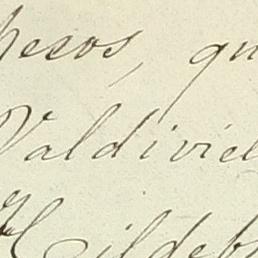 pesos, qu
Valdiviel
Hildeb